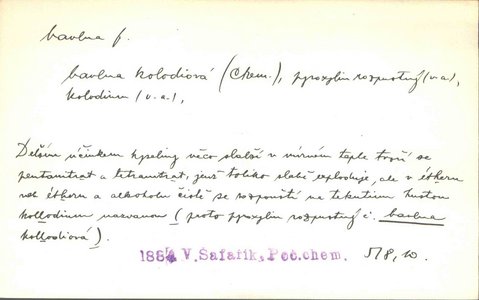 bavlna f.
bavlna kolodiová (Chem.), pyroxylin rozpustný (v. a.),
kolodium (v. a.),
Delším účinkem kyseliny něco slabší v mírném teple tvoří se
pentanitrat a tetranitrat, jenž toliko slabě exploduje, ale v étheru
neb étheru a alkoholu čistě se rozpouští na tekutinu hustou
kollodium nazvanou (proto pyroxylin rozpustný č. bavlna
kollodiová).
188 V. Šafařík, Poč. chem. 518, 10